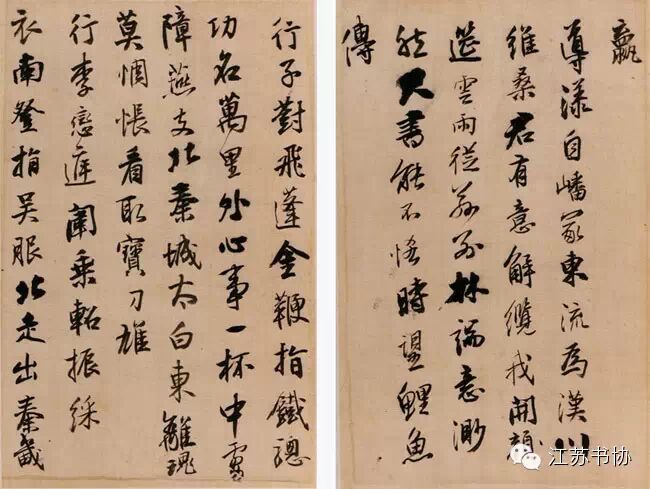 嬴
導漾自嶓冢東流為漢川
維桑君有意解纜我開
筵雲雨從茲別林端意渺
然尺書能不悋時望鯉魚
傳
行子對飛蓬金鞭指鐵驄
功名萬里外心事一杯中虜
障燕支北秦城太白東離魂
莫惆悵看取寶刀雄
行李戀庭闈乘軺振綵
衣南登指吳服北走出秦畿
江苏书协